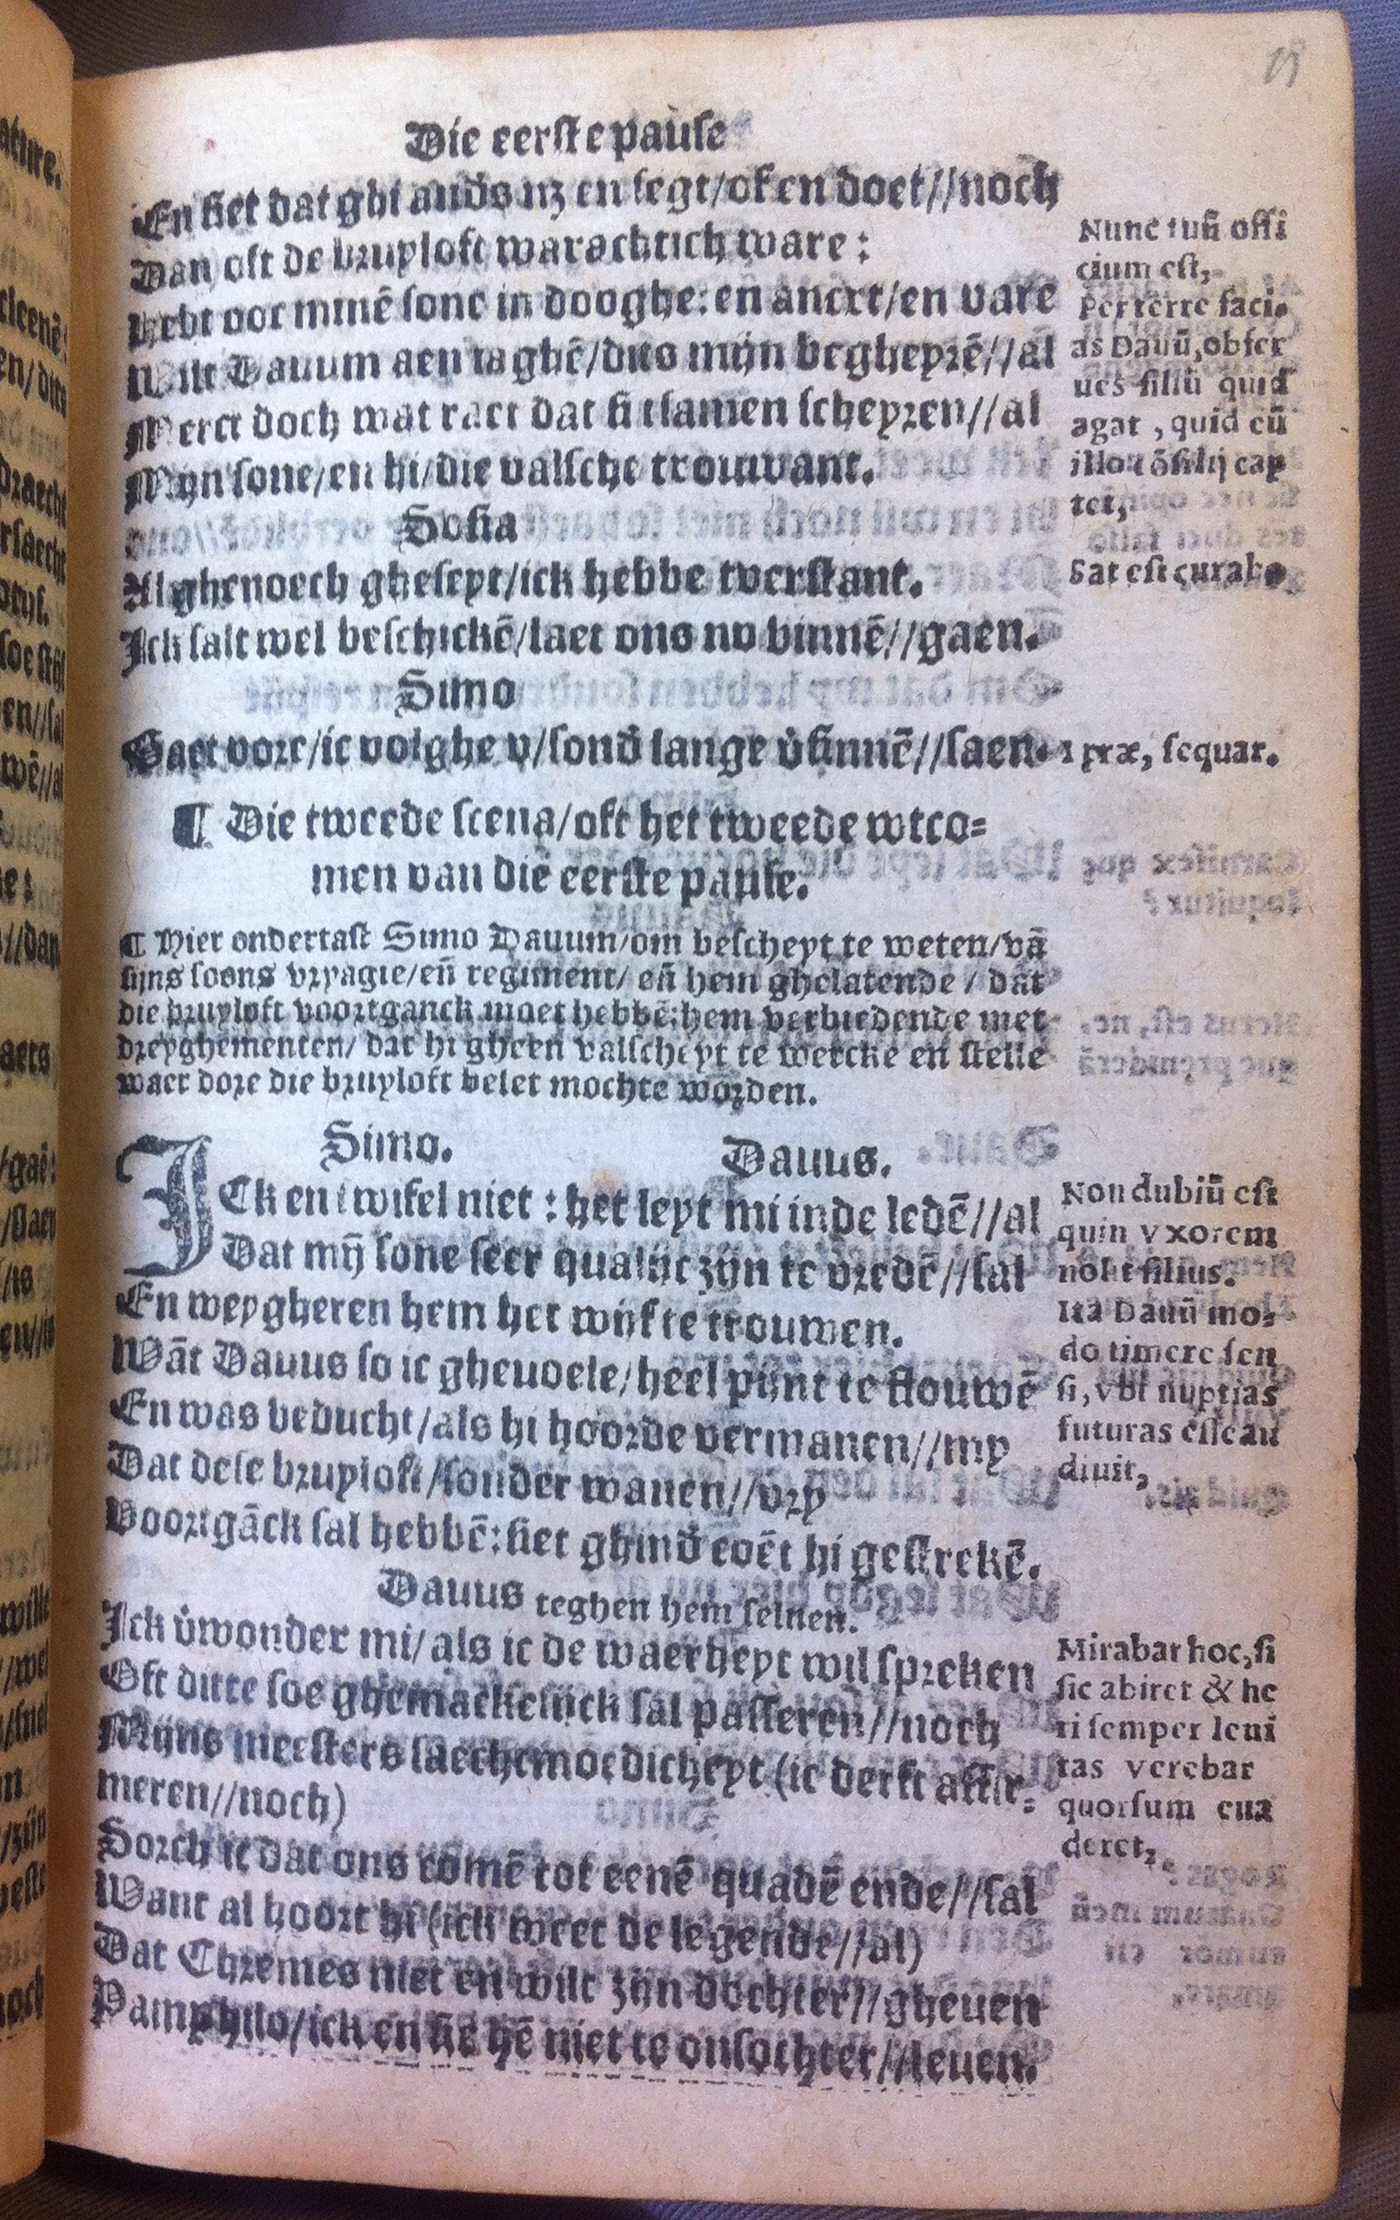 Die eerste pause
En siet dat ghi anders nz en segt/of en doet//noch
Dan oft de bruyloft warachtich ware:
Hebt ooc minē sone in dooghe: en anext/en vare
Wilt Dauum aen iaghē/dits mijn begheyrē//al
Merct doch wat raet dat si tsamen scheyren//al
Mijn sone/en hi/die valsche trouwant.
Sosia
Al ghenoech gheseyt/ick hebbe tverstant.
Ick salt wel beschickē/laet ons nv binnē//gaen.
Simo
Gaet vore/ic volghe v/sond̄ lange v̄sinnē//saen.
¶ Die tweede scena/oft het tweede wtco=
men van die eerste pause.
¶ Hier ondertast Simo Dauum/om bescheyt te weten/vā
sijns soons vryagie/eñ regiment/ eñ hem ghelatende / dat
die bruyloft voortganck moet hebbē:hem verbiedende met
dreyghementen/ dat hi gheen valscheyt te wercke en stelle
waer dore die bruyloft belet mochte worden.
Simo. Dauus.
ICk en twifel niet : het leyt mi inde ledē//al
Dat mȳ sone seer qualijc zijn te vredē//sal
En weygheren hem het wijf te trouwen.
Wāt Dauus so ic gheuoele/heel pijnt te flouwē
En was beducht/als hi hoorde vermanen//my
Dat dese bruyloft/sonder wanen//vry
Voortgāck sal hebbē:siet ghind̄ coēt hi gestrekē.
Dauus teghen hem seluen.
Ick v̄wonder mi/als ic de waerheyt wil spreken
Oft ditte soe ghemackelijck sal passeren//noch
Mijns meesters saechtmoedicheyt (ic derft affir=
meren//noch)
Sorch ic dat ons comē tot eenē quadē ende//sal
Want al hoort hi (ick weet de legende//al)
Dat Chremes niet en wilt zijn dochter//gheuen
Pamphilo/ick en sie hē niet te onsochter//leuen.
Nunc tuū offi
cium est,
Perterre faci-
as Dauū, obser
ues filiū quid
agat , quid cū
illo cōsilij cap
tet,
Sat est curabo
I præ, sequar.
Non dubiū est
quin vxorem
nolit filius.
Ita Dauū mo-
do timere sen
si, vbi nuptias
futuras esse au
diuit,
Mirabar hoc, si
sic abiret & he
ri semper leni
tas verebar
quorsum eua
deret,